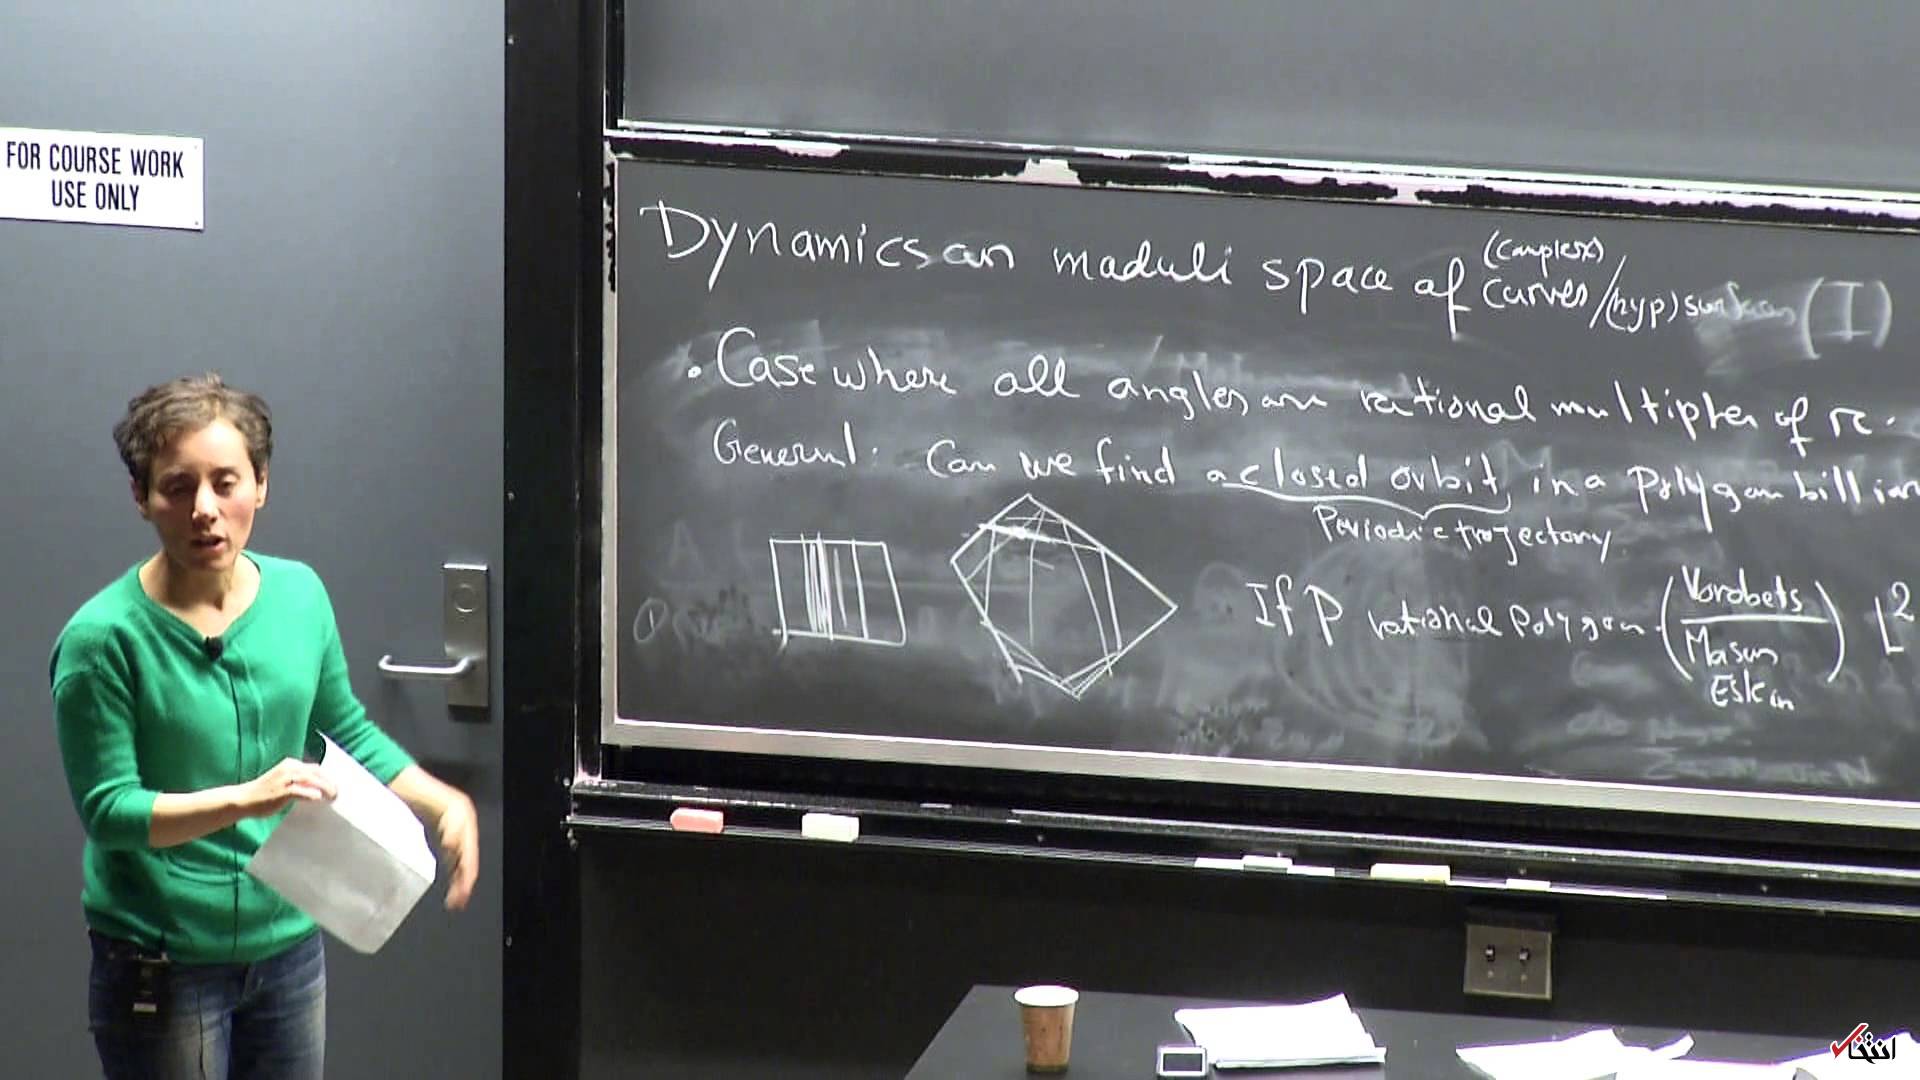 FOR COURSE WORK
USE ONLY
Dynamics on moduli space of (complex) curves/(hyp) surfaces (I)
• Case where all angles are rational multiples of π.
General: Can we find a closed orbit in a polygon billiar
Periodic trajectory
If P rational polygon (Vorobets
Masur
Eskin) L²
انتخاب